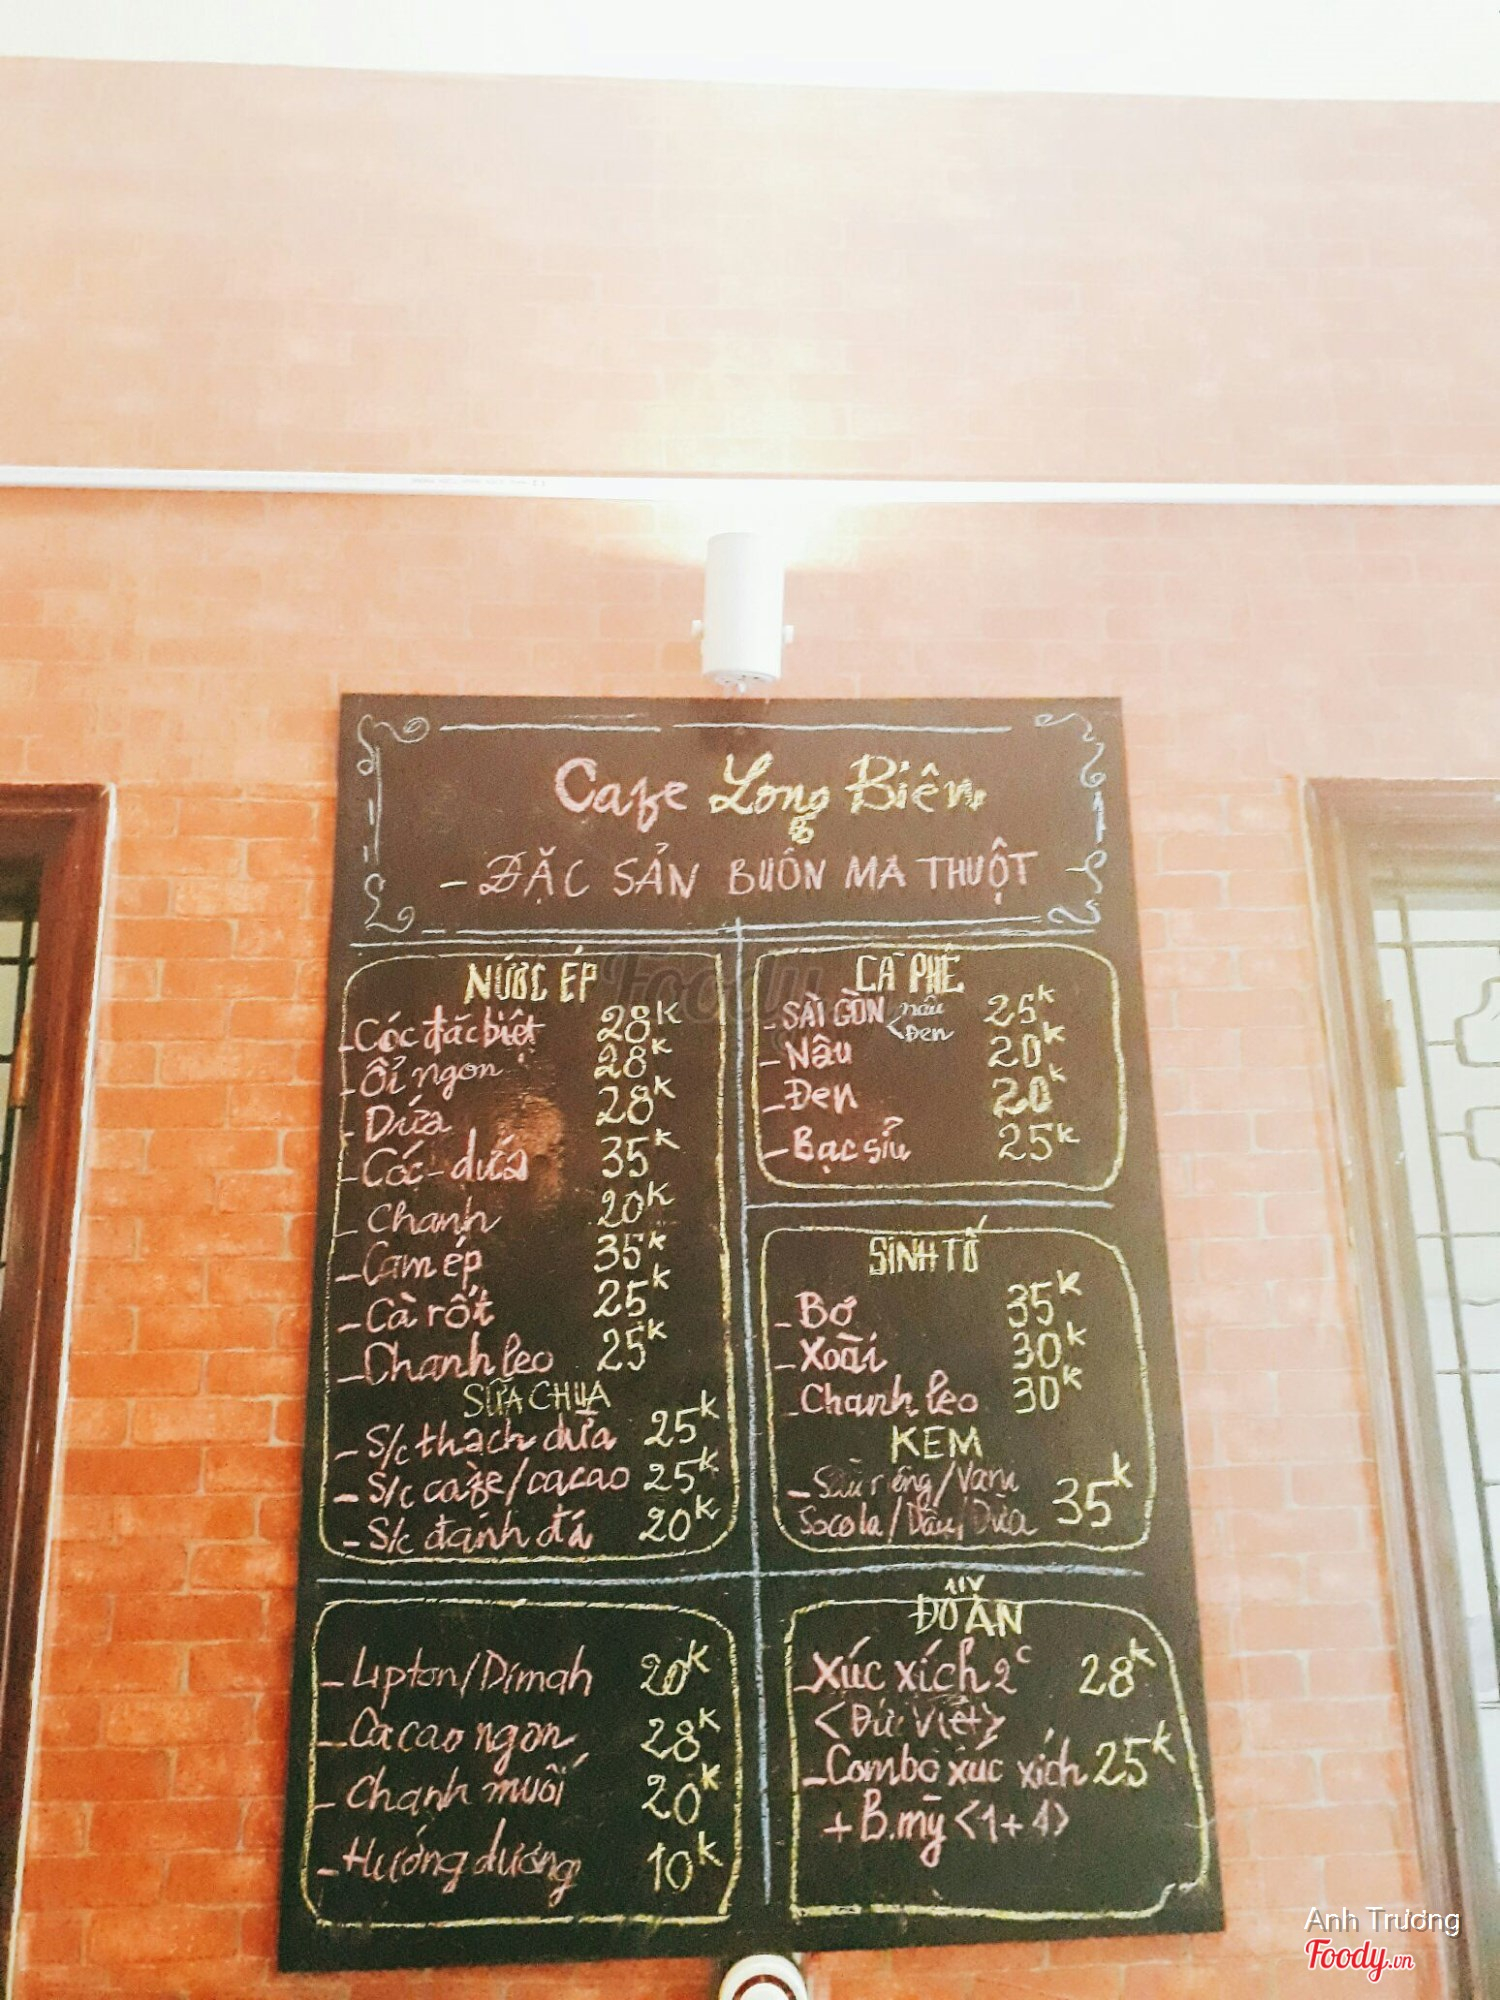 Cafe Long Biên
- ĐẶC SẢN BUÔN MA THUỘT
NƯỚC ÉP
- Cóc đặc biệt 28K
- Ổi ngon 28K
- Dứa 28K
- Cóc - dứa 35K
- Chanh 20K
- Cam ép 35K
- Cà rốt 25K
- Chanh leo 25K
SỮA CHUA
- S/c thạch dừa 25K
- S/c cafe/cacao 25K
- S/c đánh đá 20K
- Lipton/Dimah 20K
- Ca cao ngon 28K
- Chanh muối 20K
- Hướng dương 10K
CÀ PHÊ
- SÀI GÒN < nâu 25K
Đen
- Nâu 20K
- Đen 20K
- Bạc sỉu 25K
SINH TỐ
- Bơ 35K
- Xoài 30K
- Chanh leo 30K
KEM
- Sầu riêng/Vani
Socola/Dâu/Dừa 35K
ĐỒ ĂN
- Xúc xích 2c 28K
<Đức Việt>
- Combo xúc xích 25K
+ B.mỳ <1+1>
Foody
Anh Trương
Foody.vn